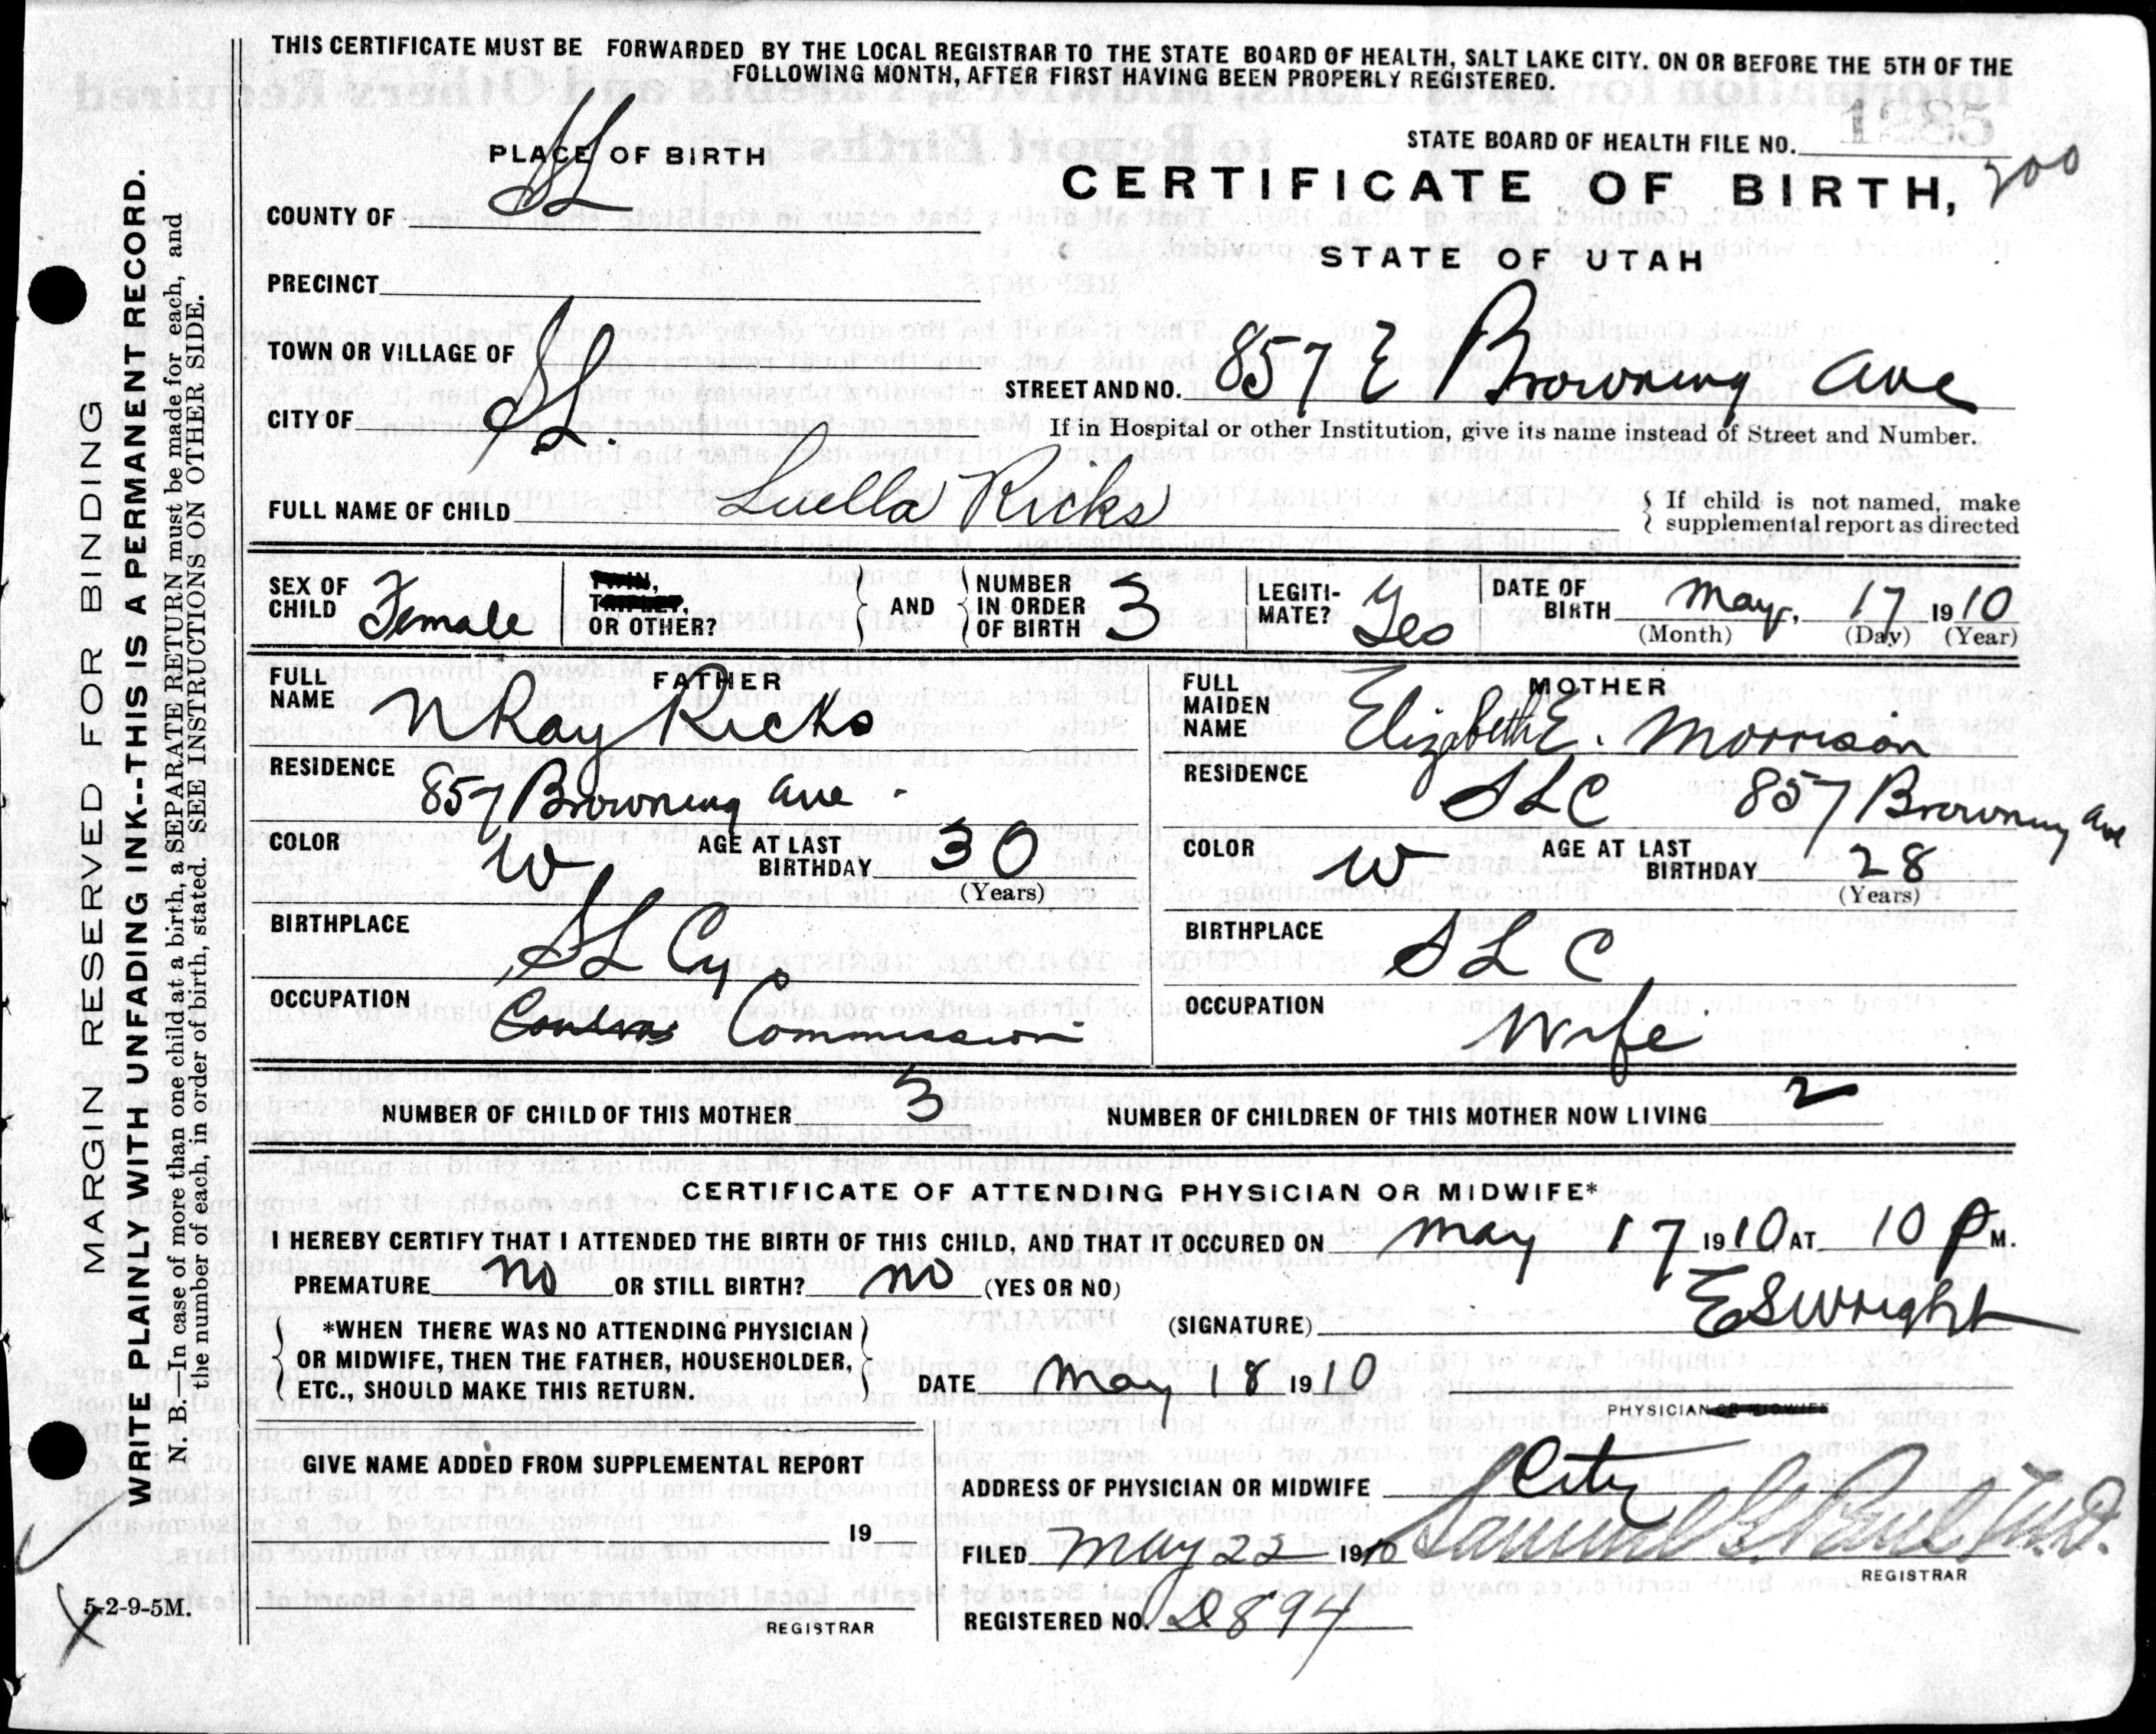 THIS CERTIFICATE MUST BE FORWARDED BY THE LOCAL REGISTRAR TO THE STATE BOARD OF HEALTH, SALT LAKE CITY. ON OR BEFORE THE 5TH OF THE
FOLLOWING MONTH, AFTER FIRST HAVING BEEN PROPERLY REGISTERED.
1285
STATE BOARD OF HEALTH FILE NO.
200
PLACE OF BIRTH
CERTIFICATE OF BIRTH,
STATE OF UTAH
COUNTY OF SL
PRECINCT
TOWN OR VILLAGE OF
CITY OF SL.
STREET AND NO. 857 E Browning Ave
If in Hospital or other Institution, give its name instead of Street and Number.
FULL NAME OF CHILD Luella Ricks
If child is not named, make
supplemental report as directed
SEX OF CHILD Female
TWIN,
TRIPLET,
OR OTHER?
AND
NUMBER IN ORDER OF BIRTH 3
LEGITI-MATE? Yes
DATE OF BIRTH May, 17 1910
(Month) (Day) (Year)
FATHER
FULL NAME N Ray Ricks
RESIDENCE 857 Browning Ave
COLOR W AGE AT LAST BIRTHDAY 30
(Years)
BIRTHPLACE SL Cy.
OCCUPATION Commission
MOTHER
FULL MAIDEN NAME Elizabeth E. Morrison
RESIDENCE SLC 857 Browning Ave
COLOR W AGE AT LAST BIRTHDAY 28
(Years)
BIRTHPLACE SLC
OCCUPATION Wife
NUMBER OF CHILD OF THIS MOTHER 3 NUMBER OF CHILDREN OF THIS MOTHER NOW LIVING 2
CERTIFICATE OF ATTENDING PHYSICIAN OR MIDWIFE*
I HEREBY CERTIFY THAT I ATTENDED THE BIRTH OF THIS CHILD, AND THAT IT OCCURED ON May 17 1910 AT 10 P M.
PREMATURE no OR STILL BIRTH? no (YES OR NO)
*WHEN THERE WAS NO ATTENDING PHYSICIAN
OR MIDWIFE, THEN THE FATHER, HOUSEHOLDER,
ETC., SHOULD MAKE THIS RETURN.
(SIGNATURE) E S Wright
DATE May 18 1910
PHYSICIAN OR MIDWIFE
GIVE NAME ADDED FROM SUPPLEMENTAL REPORT
19
REGISTRAR
ADDRESS OF PHYSICIAN OR MIDWIFE City
FILED May 22 1910 Samuel G. Paul M.D.
REGISTRAR
REGISTERED NO. D894
MARGIN RESERVED FOR BINDING
WRITE PLAINLY WITH UNFADING INK--THIS IS A PERMANENT RECORD.
N. B.—In case of more than one child at a birth, a SEPARATE RETURN must be made for each, and
the number of each, in order of birth, stated. SEE INSTRUCTIONS ON OTHER SIDE.
5-2-9-5M.